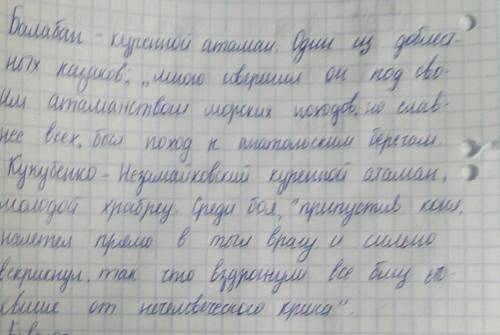 Балабан – куренной атаман. Один из доблес-
ных казаков, „много свершил он под сво-
им атаманством морских походов, но слав-
нее всех, был поход к анатольским берегам.
Кукубенко – Незамайковский куренной атаман,
молодой храбрец. Среди боя, "припустив коня,
налетел прямо в тыл врагу и сильно
вскрикнул, так что вздрогнули все близ сто-
явшие от нечеловеческого крика".